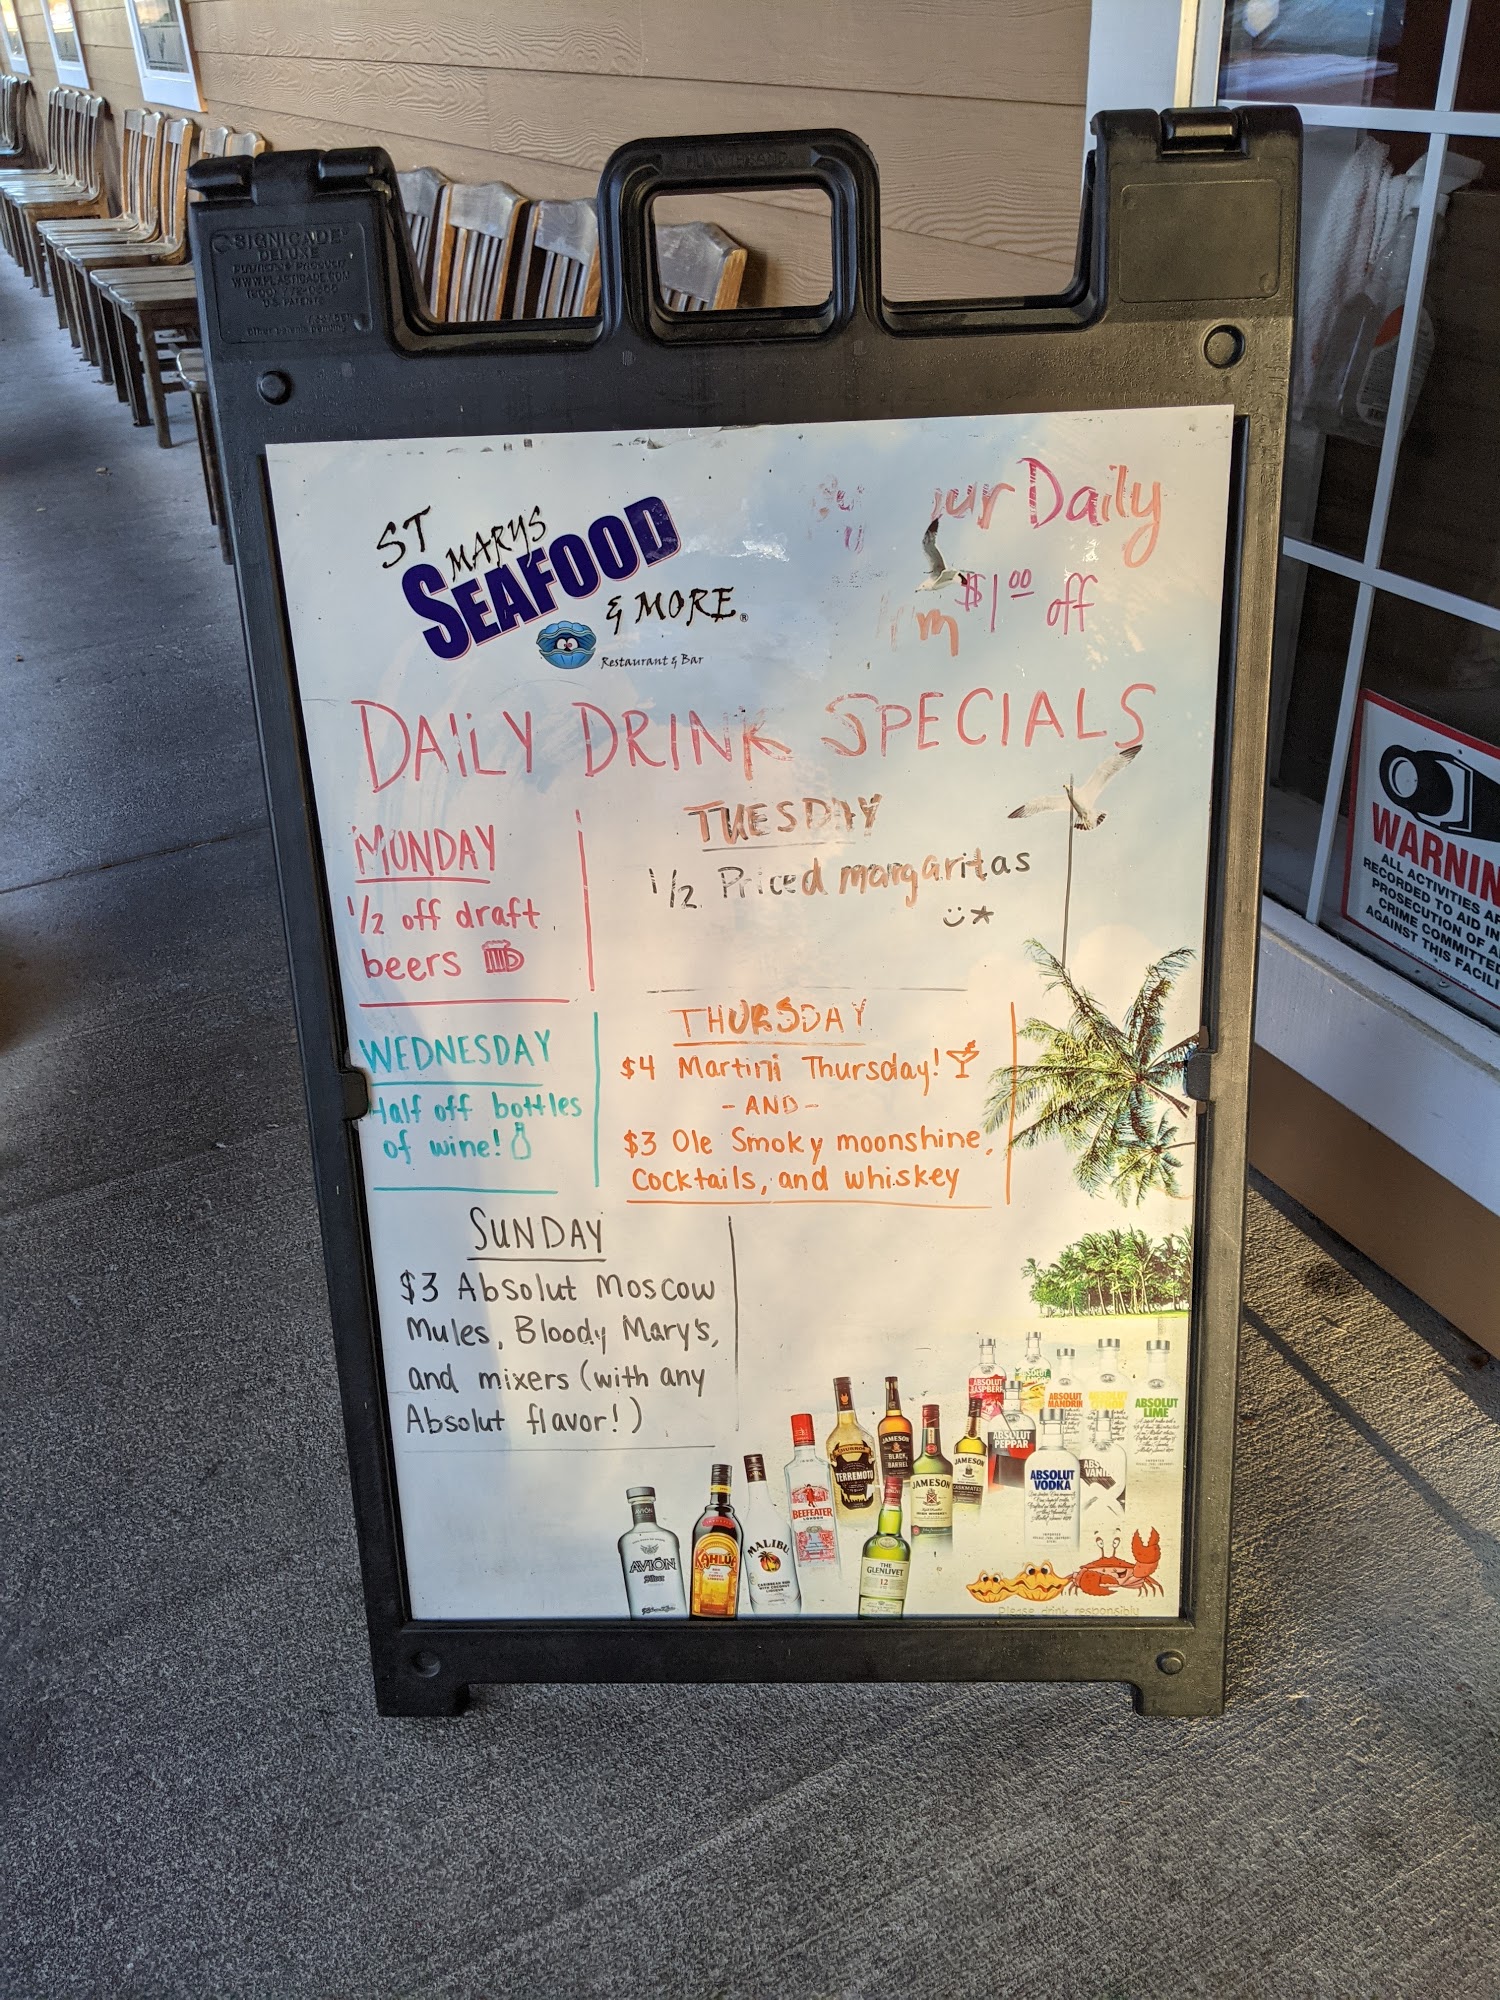 SIGNICADE
DELUXE
WWW.PLASTICADE.COM
U.S. PATENTS
ST
MARYS
SEAFOOD
& MORE
Restaurant & Bar
Daily
$1.00 off
DAILY DRINK SPECIALS
MONDAY
1/2 off draft
beers
TUESDAY
1/2 Priced margaritas
WEDNESDAY
Half off bottles
of wine!
THURSDAY
$4 Martini Thursday!
- AND -
$3 Ole Smoky moonshine,
Cocktails, and whiskey
SUNDAY
$3 Absolut Moscow
Mules, Bloody Mary's,
and mixers (with any
Absolut flavor!)
AVIÓN
Silver
KAHLÚA
MALIBU
BEEFEATER
LONDON
TERREMOTO
JAMESON
BLACK
BARREL
JAMESON
JAMESON
CASKMATES
THE
GLENLIVET
12
ABSOLUT
ABSOLUT
ABSOLUT
MANDRIN
ABSOLUT
LIME
ABSOLUT
PEPPAR
ABSOLUT
VODKA
Please drink responsibly
WARNIN
ALL ACTIVITIES AR
RECORDED TO AID IN
PROSECUTION OF A
CRIME COMMITTED
AGAINST THIS FACILI